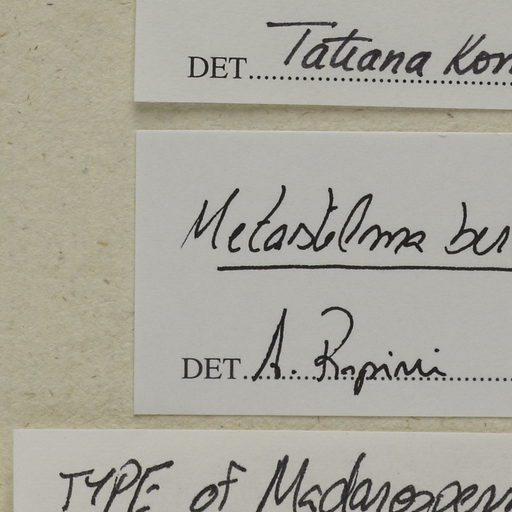 DET. Tatiana Kon
Metastelma ber
DET. A. Rapini
TYPE of Madarosperm